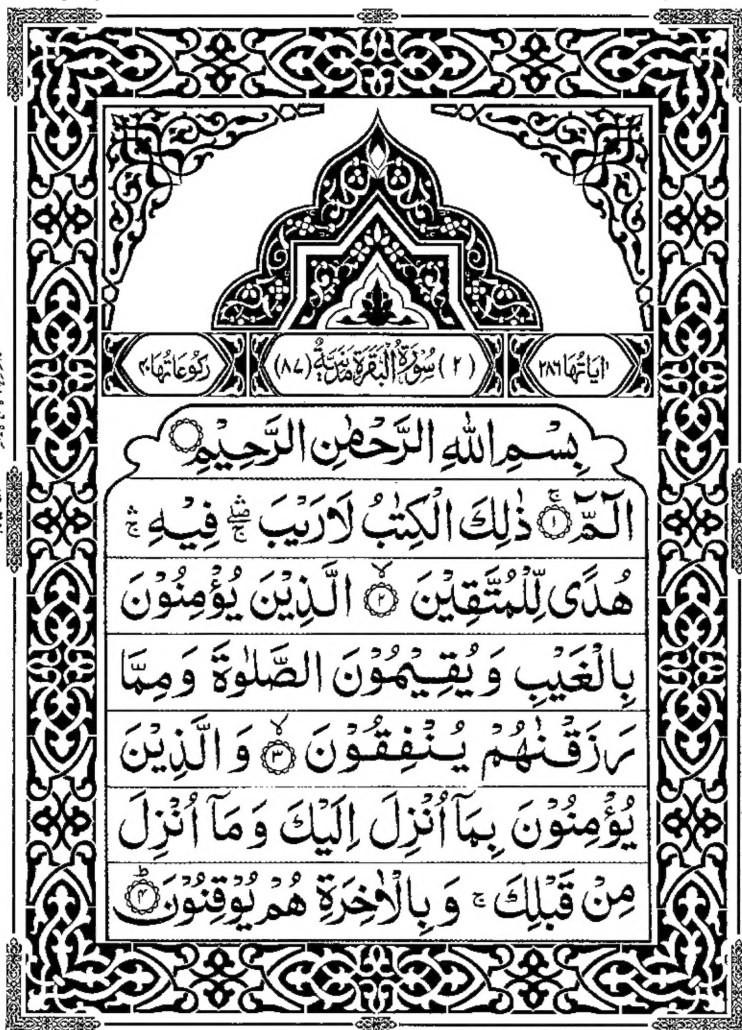 اٰيَاتُهَا ٢٨٦ (٢) سُوْرَةُ الْبَقَرَةِ مَدَنِيَّةٌ (٨٧) رُكُوْعَاتُهَا ٤٠
بِسْمِ اللهِ الرَّحْمٰنِ الرَّحِيْمِ
الٓمّٓ ۚ‏﴿۱﴾ ذٰلِكَ الْكِتٰبُ لَا رَيْبَ ۛۖۚ فِيْهِ ۛۚ
هُدًى لِّلْمُتَّقِيْنَ ۙ﴿۲﴾ الَّذِيْنَ يُؤْمِنُوْنَ
بِالْغَيْبِ وَيُقِيْمُوْنَ الصَّلٰوةَ وَمِمَّا
رَزَقْنٰهُمْ يُنْفِقُوْنَ ۙ﴿۳﴾ وَالَّذِيْنَ
يُؤْمِنُوْنَ بِمَآ اُنْزِلَ اِلَيْكَ وَمَآ اُنْزِلَ
مِنْ قَبْلِكَ ۚ وَبِالْاٰخِرَةِ هُمْ يُوْقِنُوْنَ ؕ﴿۴﴾